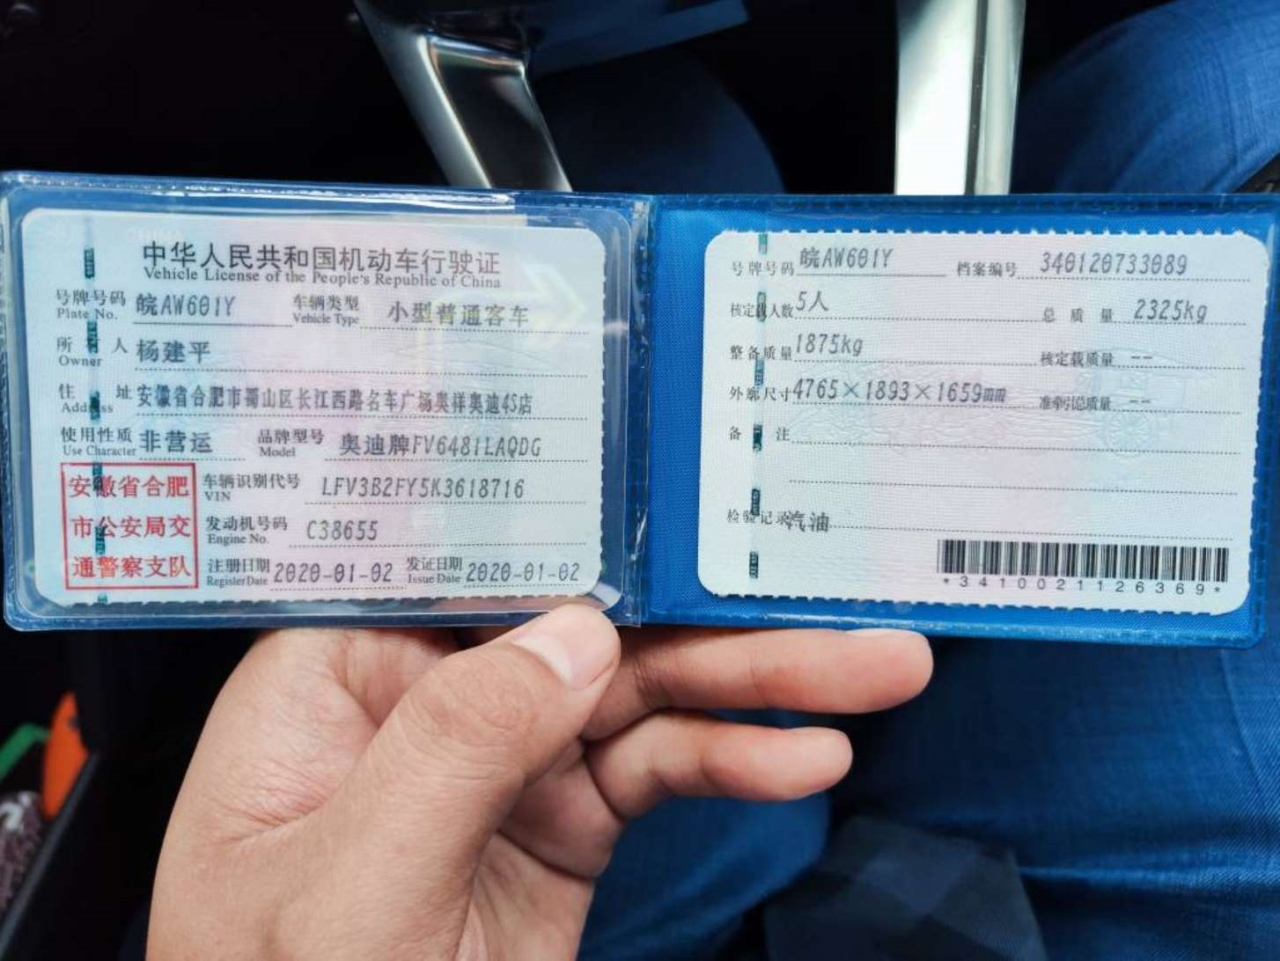 中华人民共和国机动车行驶证
Vehicle License of the People's Republic of China
号牌号码 皖AW601Y 车辆类型 小型普通客车
Plate No. Vehicle Type
所有人 杨建平
Owner
住址 安徽省合肥市蜀山区长江西路名车广场奥祥奥迪4S店
Address
使用性质 非营运 品牌型号 奥迪牌FV6481LAQDG
Use Character Model
安徽省合肥
市公安局交
通警察支队
车辆识别代号 LFV3B2FY5K3618716
VIN
发动机号码 C38655
Engine No.
注册日期 2020-01-02 发证日期 2020-01-02
Register Date Issue Date
号牌号码 皖AW601Y 档案编号 340120733089
核定载人数 5人 总质量 2325kg
整备质量 1875kg 核定载质量 --
外廓尺寸 4765×1893×1659mm 准牵引总质量 --
备注
检验记录 汽油
*3410021126369*